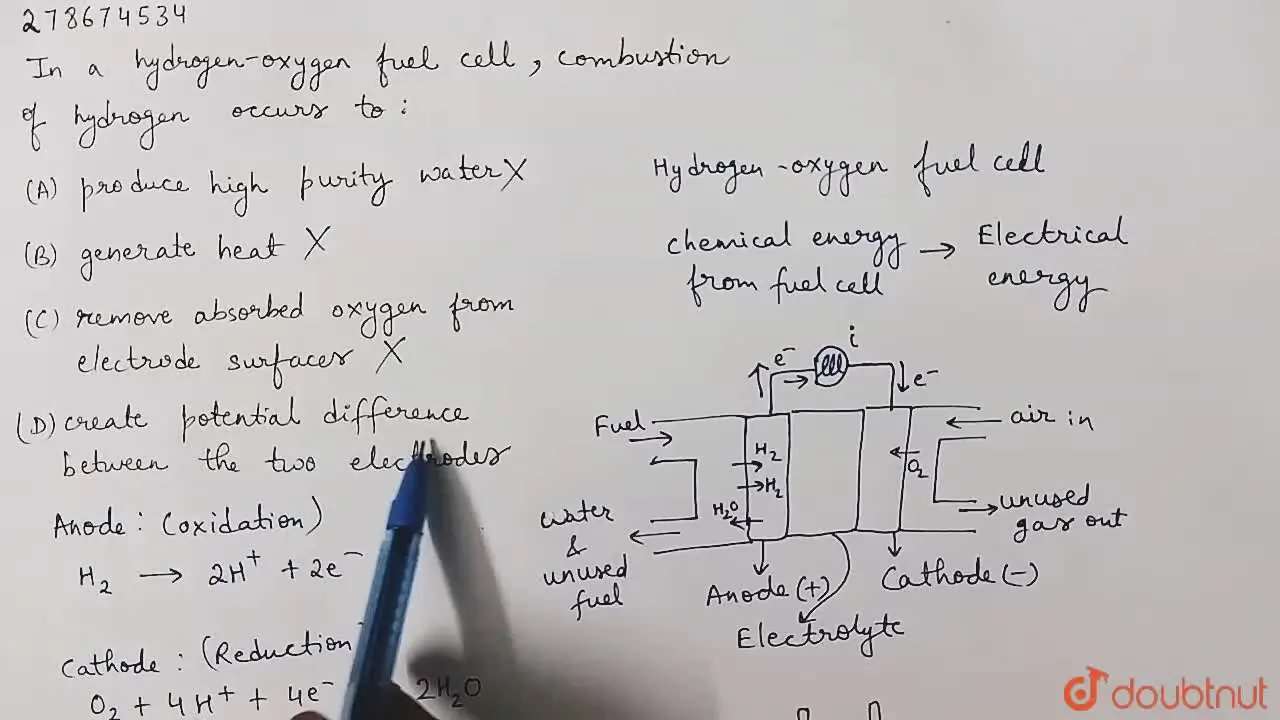 278674534
In a hydrogen-oxygen fuel cell, combustion
of hydrogen occurs to:
(A) produce high purity water X
(B) generate heat X
(C) remove absorbed oxygen from
electrode surfaces X
(D) create potential difference
between the two electrodes
Anode: (oxidation)
H₂ → 2H⁺ + 2e⁻
Cathode: (Reduction
O₂ + 4H⁺ + 4e⁻ 2H₂O
Hydrogen-oxygen fuel cell
chemical energy → Electrical
from fuel cell energy
i
e⁻
e⁻
Fuel
air in
H₂
H₂
O₂
H₂O
water
&
unused
fuel
unused
gas out
Anode (+)
Cathode (-)
Electrolyte
doubtnut